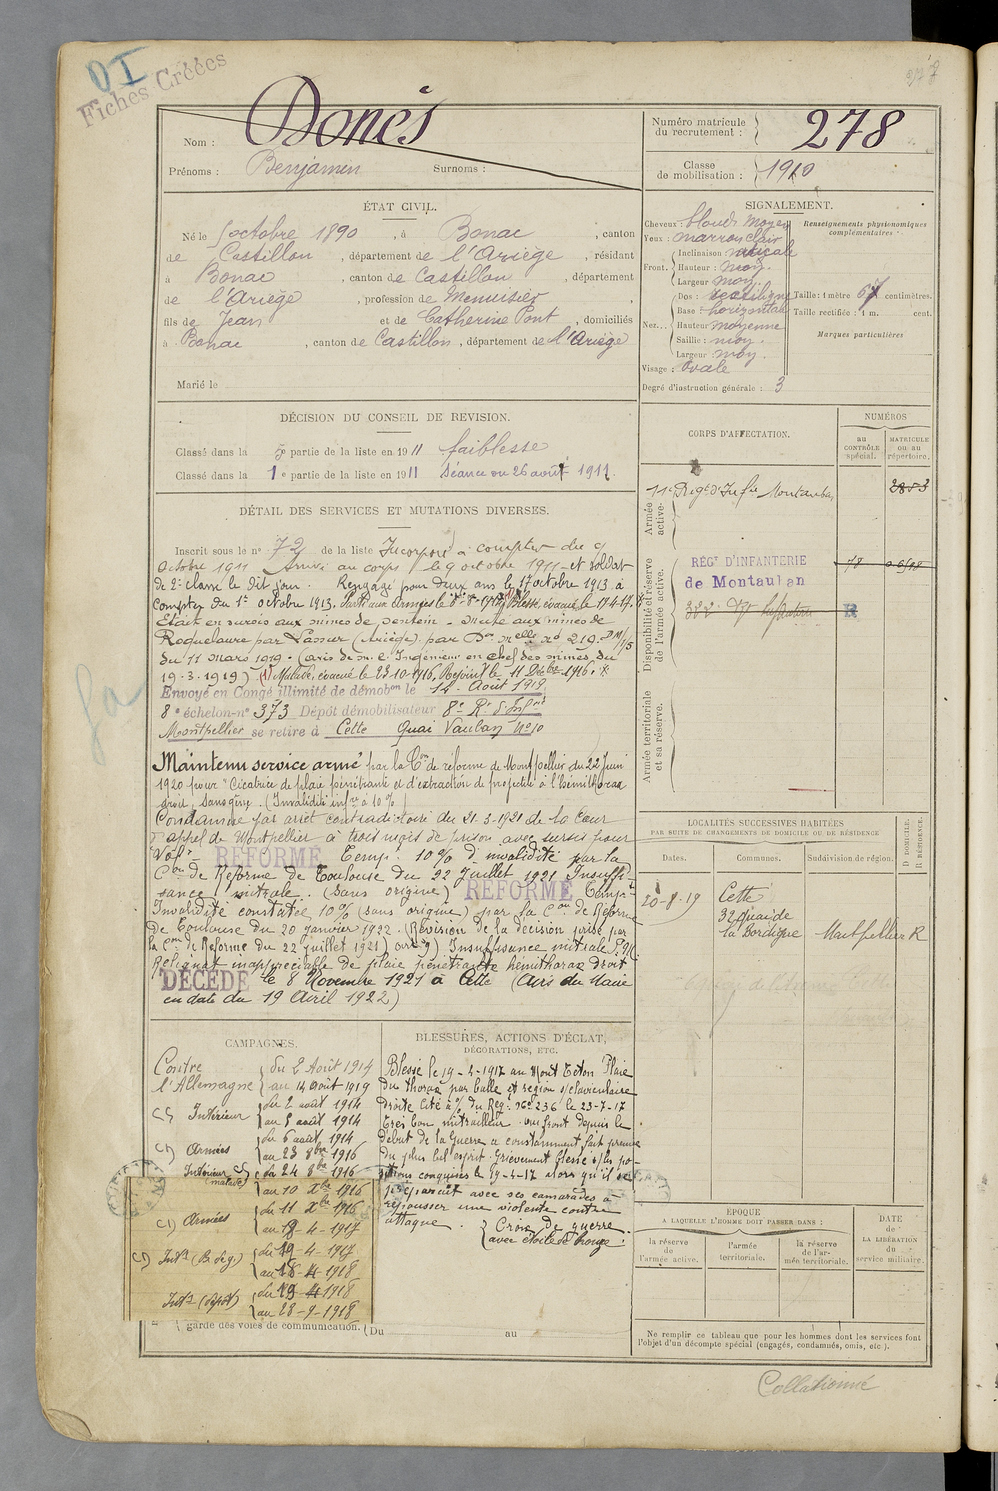 01
Fiches Créées
Nom : Donès
Prénoms : Benjamin Surnoms :
Numéro matricule du recrutement : 278
Classe de mobilisation : 1910
ÉTAT CIVIL.
Né le 5 octobre 1890, à Bonac, canton
de Castillon, département de l'Ariège, résidant
à Bonac, canton de Castillon, département
de l'Ariège, profession de Menuisier
fils de Jean et de Catherine Pont, domiciliés
à Bonac, canton de Castillon, département de l'Ariège
Marié le
SIGNALEMENT.
Cheveux : blond moyen
Yeux : marron clair
Front. Inclinaison : verticale
Hauteur : moy.
Largeur : moy.
Nez... Dos : rectiligne
Base : horizontale
Hauteur : moyenne
Saillie : moy.
Largeur : moy.
Visage : Ovale
Degré d'instruction générale : 3
Renseignements physionomiques complémentaires :
Taille : 1 mètre 67 centimètres.
Taille rectifiée : 1 m. cent.
Marques particulières
DÉCISION DU CONSEIL DE REVISION.
Classé dans la 5e partie de la liste en 1911 faiblesse
Classé dans la 1e partie de la liste en 1911 Séance du 26 août 1911
DÉTAIL DES SERVICES ET MUTATIONS DIVERSES.
Inscrit sous le n° 72 de la liste Incorporé à compter du 9
octobre 1911 Arrivé au corps le 9 octobre 1911 et soldat
de 2e classe le dit jour. Rengagé pour deux ans le 17 octobre 1913 à
compter du 1er octobre 1913. Parti aux armées le Blessé, évacué le 17-4-17.
Etait en sursis aux mines de pentein - Muté aux mines de
Roquelaure par Lassur (Ariège) par Don melle no 219 DM/5
du 11 mars 1919 - (avis de m. l'Ingénieur en chef des mines du
19.3.1919) (1) Malade, évacué le 23-10-1916, Rejoint le 11 Décbre 1916.
Envoyé en Congé illimité de démobon le 14 Août 1919
8e échelon-n° 373 Dépôt démobilisateur 8e Rt d'Infrie
Montpellier se retire à Cette Quai Vauban no 10
Maintenu service armé par la Con de réforme de Montpellier du 22 Juin
1920 pour "Cicatrice de plaie pénétrante et d'extraction de projectile à l'hémithorax
droit, sans gêne. (Invalidité infre à 10%)
Condamné par arrêt contradictoire du 21-3-1921 de la Cour
d'appel de Montpellier à trois mois de prison avec sursis pour
Vol - RÉFORMÉ Temp. 10% d'invalidité par la
Con de Réforme de Toulouse du 22 Juillet 1921 Insuffi-
sance mitrale. (sans origine) RÉFORMÉ Tempt
Invalidité constatée 10% (sans origine) par la Con de Réforme
de Toulouse du 20 janvier 1922. (Révision de la décision prise par
la Con de Réforme du 22 juillet 1921) Insuffisance mitrale
Reliquat inappréciable de plaie pénétrante hémithorax droit
DÉCÉDÉ le 8 Novembre 1921 à Cette (Avis du Maire
en date du 19 Avril 1922)
CORPS D'AFFECTATION.
NUMÉROS
au contrôle spécial.
matricule ou au répertoire.
Armée active.
11e Régt d'Infie Montauban 3853
Disponibilité et réserve de l'armée active.
RÉGt D'INFANTERIE
de Montauban
R
Armée territoriale et sa réserve.
LOCALITÉS SUCCESSIVES HABITÉES
PAR SUITE DE CHANGEMENTS DE DOMICILE OU DE RÉSIDENCE
Dates. Communes. Subdivision de région. D DOMICILE. R RÉSIDENCE.
20-8-19 Cette
32 Quai de
la Bordigue Montpellier R
CAMPAGNES.
Contre l'Allemagne du 2 Août 1914
au 14 août 1919
Intérieur du 2 août 1914
au 5 août 1914
Armées du 6 août 1914
au 23 8bre 1916
Intérieur (malade) du 24 8bre 1916
au 10 Xbre 1916
Armées du 11 Xbre 1916
au 18-4-1917
Intr (B. de g.) du 19-4-1917
au 18-4-1918
Intr (dépôt) du 19-4-1918
au 28-9-1918
garde des voies de communication. Du au
BLESSURES, ACTIONS D'ÉCLAT,
DÉCORATIONS, ETC.
Blessé le 19-4-1917 au Mont Téton Plaie
du thorax par balle et région s/claviculaire
droite Cité à l'o/ du Régt No 236 le 23-7-17
Très bon mitrailleur. Au front depuis le
début de la Guerre a constamment fait preuve
du plus bel esprit. Grièvement blessé s/les po-
sitions conquises le 19-4-17 alors qu'il se
préparait avec ses camarades à
repousser une violente contre
attaque. Croix de guerre
avec étoile de bronze.
ÉPOQUE
A LAQUELLE L'HOMME DOIT PASSER DANS :
la réserve de l'armée active.
l'armée territoriale.
la réserve de l'armée territoriale.
DATE DE LA LIBÉRATION du service militaire.
Ne remplir ce tableau que pour les hommes dont les services font
l'objet d'un décompte spécial (engagés, condamnés, omis, etc.).
Collationné